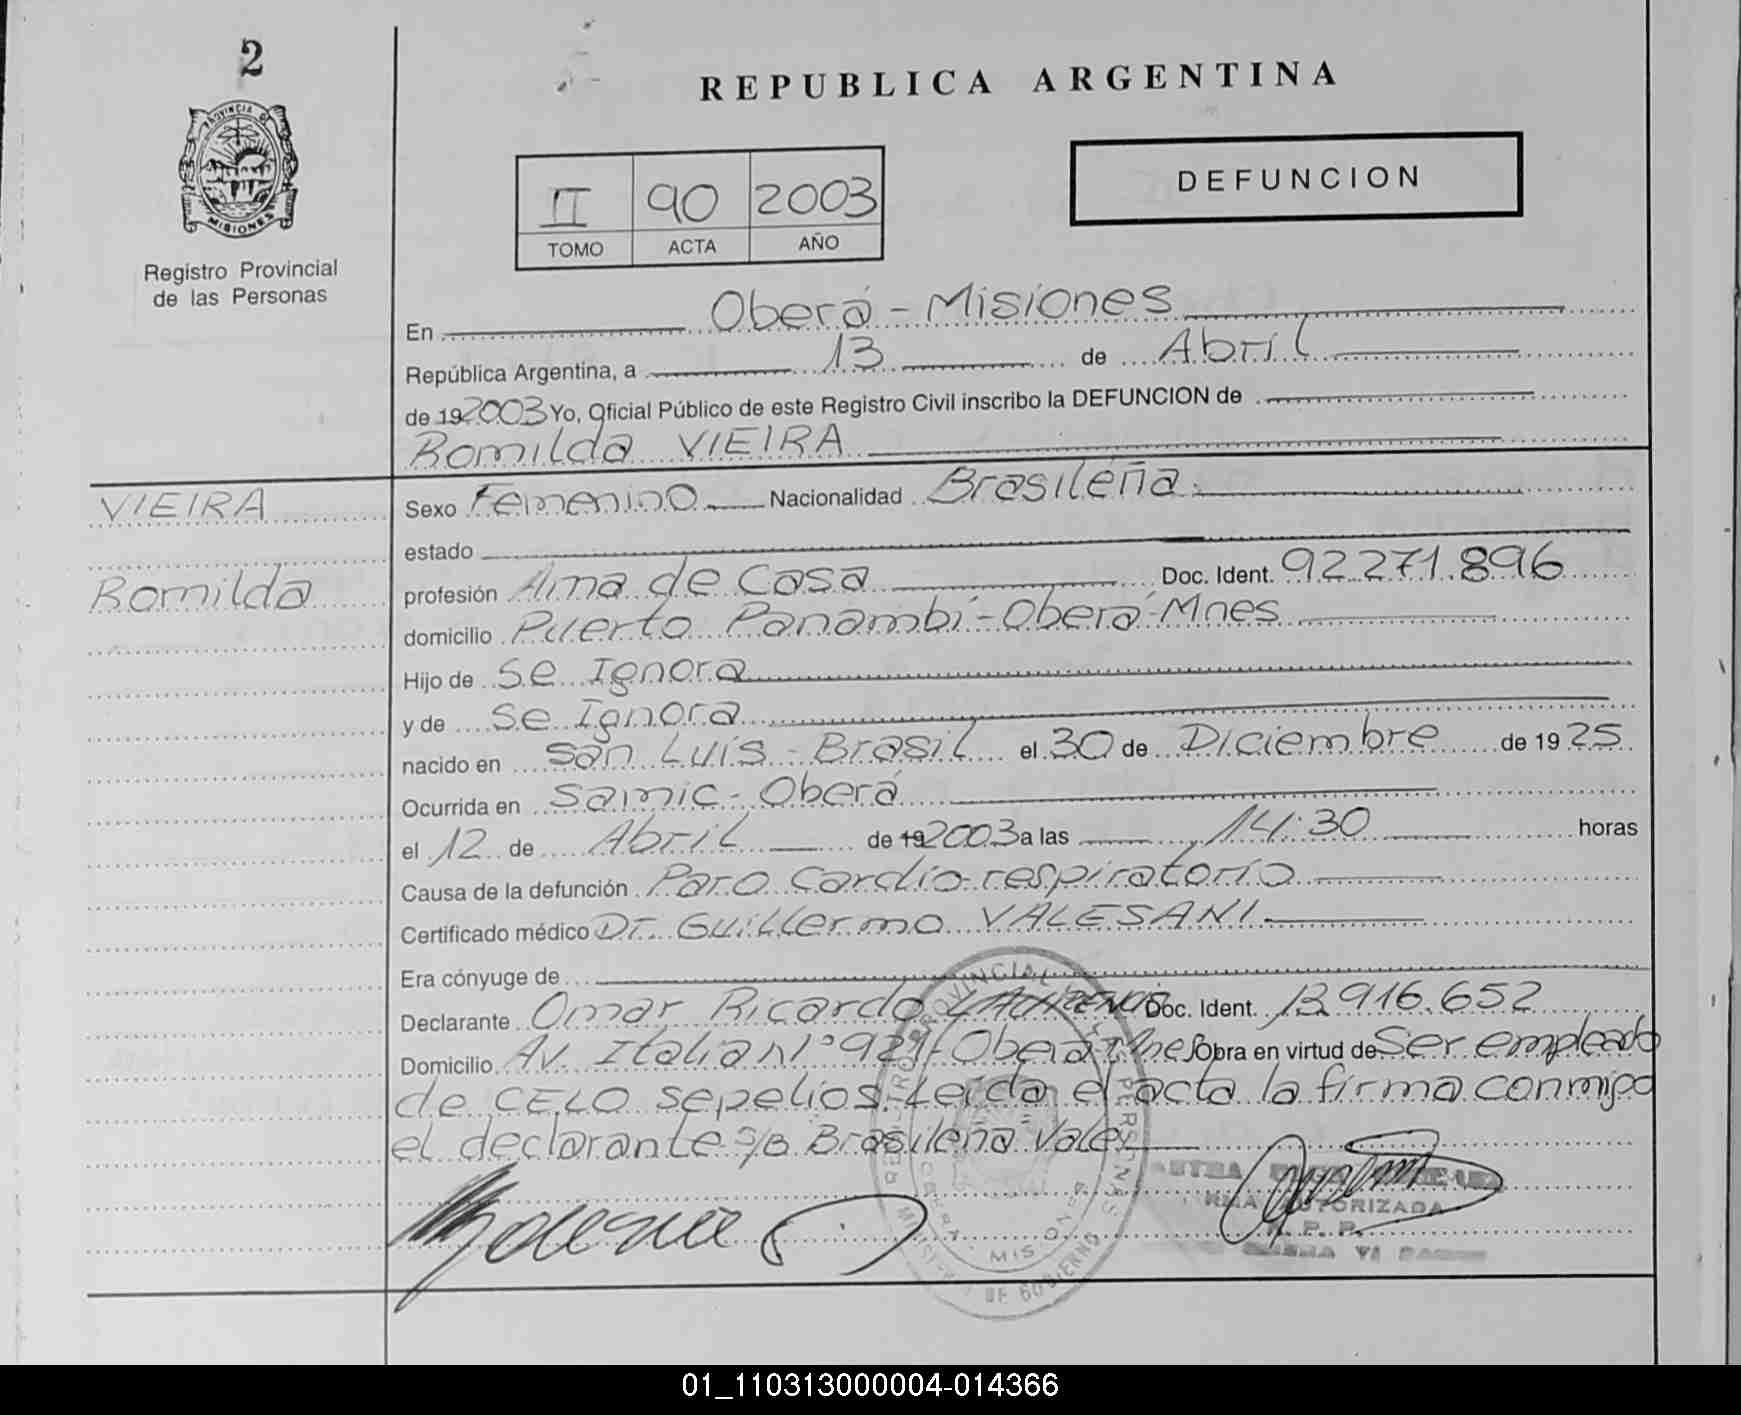 2
PROVINCIA DE
MISIONES
Registro Provincial
de las Personas
REPUBLICA ARGENTINA
II 90 2003
TOMO ACTA AÑO
DEFUNCION
En Oberá - Misiones
República Argentina, a 13 de Abril
de 19 2003 Yo, Oficial Público de este Registro Civil inscribo la DEFUNCION de
Romilda VIEIRA
VIEIRA
Romilda
Sexo Femenino Nacionalidad Brasileña
estado
profesión Ama de Casa Doc. Ident. 92.271.896
domicilio Puerto Panambí - Oberá - Mnes
Hijo de Se Ignora
y de Se Ignora
nacido en San Luis - Brasil el 30 de Diciembre de 19 25
Ocurrida en Samic - Oberá
el 12 de Abril de 19 2003 a las 14:30 horas
Causa de la defunción Paro Cardio-respiratorio
Certificado médico Dr. Guillermo VALESANI
Era cónyuge de
Declarante Omar Ricardo Doc. Ident. 13.916.652
Domicilio Av. Italia Nº 921 - Oberá Mnes Obra en virtud de Ser empleado
de CELO sepelios. Leída el acta la firma conmigo
el declarante s/b Brasileña Vale
REGISTRO PROVINCIAL DE LAS PERSONAS
MISIONES
DE GOBIERNO
AUTORIZADA
R. P. P.
01_110313000004-014366